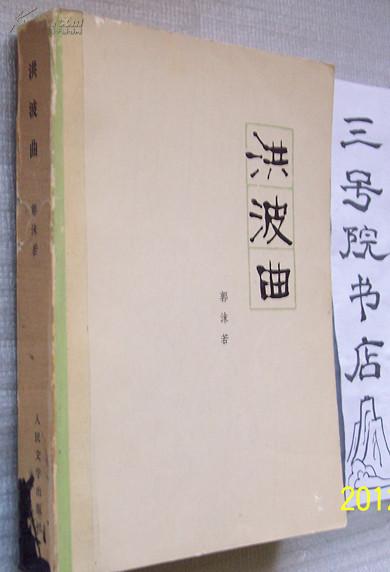 洪波曲
郭沫若
人民文学出版社
洪波曲
郭沫若
三号院书店
201